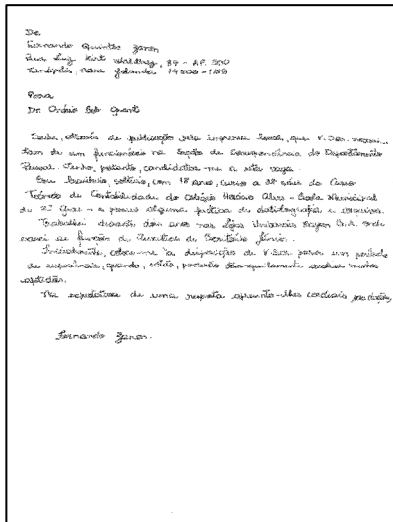 De
Fernando Quintes Zanon
Rua Luiz 87 - AP. 300
14200-100
Para
Dr. Onório
Soube, através de publicação pela imprensa local, que V.Sas. necessi-
tam de um funcionário na Seção de Correspondência do Departamento
Pessoal. Venho, portanto, candidatar-me a esta vaga.
Sou brasileiro, solteiro, com 18 anos, curso a 3ª série do Curso
Técnico de Contabilidade do Colégio Alves - Escola Municipal
de 2º Grau - e possuo alguma prática de datilografia e arquivo.
Trabalhei durante dois anos nas Lojas S.A. onde
exerci as funções de Auxiliar de Escritório Júnior.
Inicialmente, coloco-me à disposição de V.Sas. para um período
de experiência, quando, então, poderão
aptidões.
Na expectativa de uma resposta apresento-lhes cordiais saudações,
Fernando Zanon.